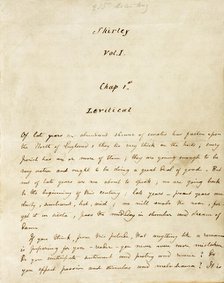 Shirley
Vol. I.
Chap 1st
Levitical
Of late years an abundant shower of curates has fallen upon
the North of England: they lie very thick on the hills; every
parish has one or more of them; they are young enough to be
very active and ought to be doing a great deal of good. But
not of late years are we about to speak; we are going back
to the beginning of this century; late years, present years are
dusty, sunburnt, hot, arid; we will evade the noon, for-
get it in siesta, pass the mid-day in slumber and dream of
dawn.
If you think from this prelude that anything like a romance
is preparing for you - reader - you never were more mistaken.
Do you anticipate sentiment and poetry and reverie? Do
you expect passion and stimulus and melo-drama?